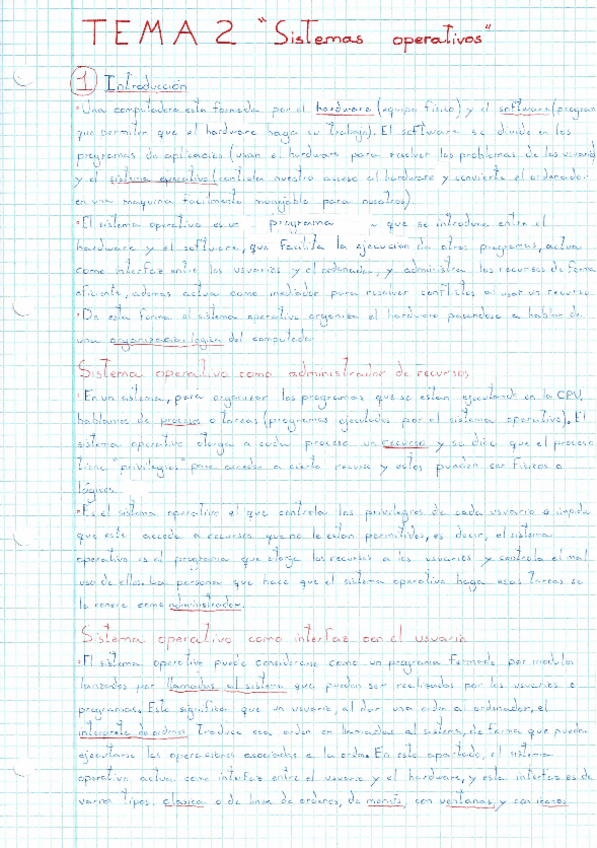 TEMA 2 "Sistemas operativos"
1 Introducción
·Una computadora esta formada por el hardware (equipo físico) y el software (program
que permiten que el hardware haga su trabajo). El software se divide en los
programas de aplicacion (usan el hardware para resolver los problemas de los usuario
y el sistema operativo (controla nuestro acceso al hardware y convierte el ordenador
en una maquina facilmente manejable para nosotros).
·El sistema operativo es un programa que se introduce entre el
hardware y el software, que facilita la ejecucion de otros programas, actua
como interfaz entre los usuarios y el ordenador, y administra los recursos de forma
eficiente, ademas actua como mediador para resolver conflictos al usar un recurso.
·De esta forma el sistema operativo organiza el hardware pasandose a hablar de
una organizacion logica del computador
Sistema operativo como administrador de recursos
·En un sistema, para organizar los programas que se estan ejecutando en la CPU,
hablamos de proceso o tareas (programas ejecutados por el sistema operativo). El
sistema operativo otorga a cada proceso un recurso y se dice que el proceso
tiene "privilegios" para acceder a cierto recurso y estos pueden ser físicos o
lógicos
·Es el sistema operativo el que controla los privilegios de cada usuario e impide
que este acceda a recursos que no le estan permitidos, es decir, el sistema
operativo es el programa que otorga los recursos a los usuarios y controla el mal
uso de ellos. La persona que hace que el sistema operativo haga esas tareas se
la conoce como administrador.
Sistema operativo como interfaz con el usuario
·El sistema operativo puede considerarse como un programa formado por modulos
lanzados por llamadas al sistema que pueden ser realizadas por los usuarios o
programas. Esto significa que un usuario, al dar una orden al ordenador, el
interprete de ordenes traduce esa orden en llamadas al sistema, de forma que puedan
ejecutarse las operaciones asociadas a la orden. En este apartado, el sistema
operativo actua como interfaz entre el usuario y el hardware, y esta interfaz es de
varios tipos: clasica o de linea de ordenes, de menús, con ventanas y con iconos